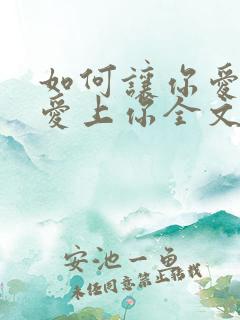 如何讓你愛
愛上你全文
安池一魚
未经同意禁止转载